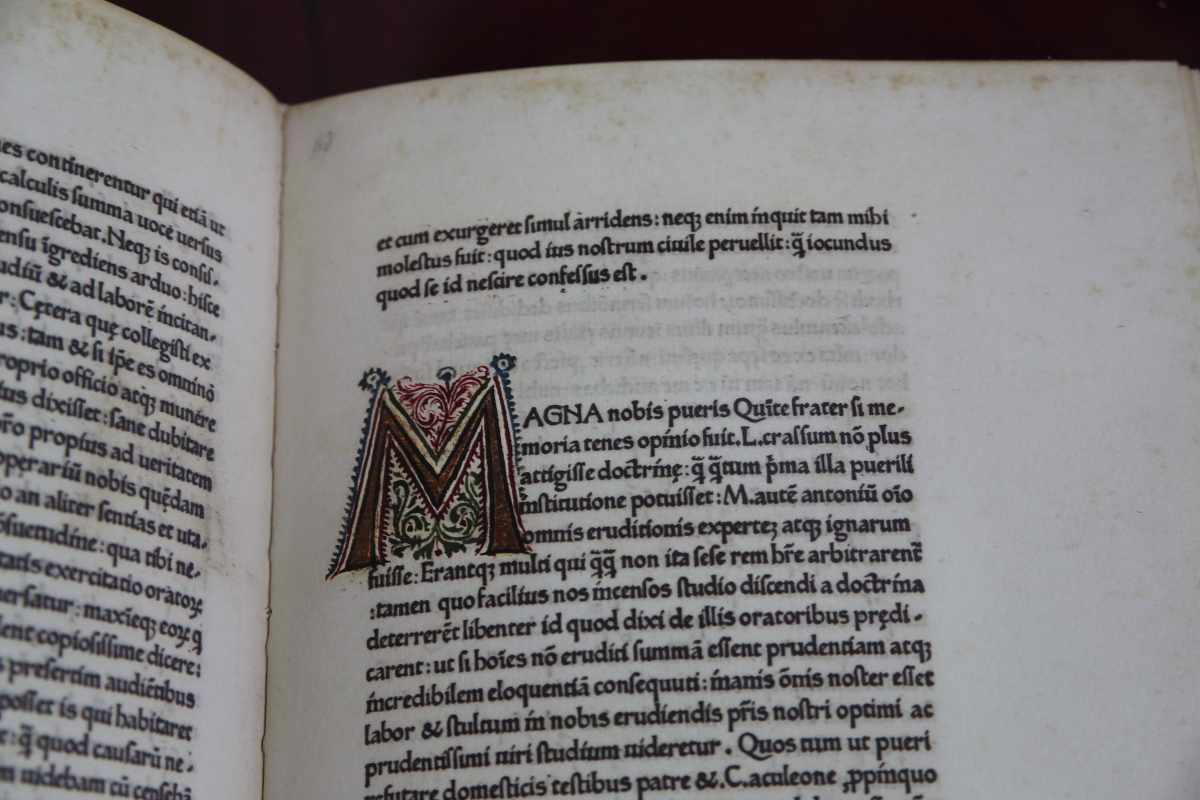 continerentur qui etiā ut
calculis summa uoce uersus
onsuescebat. Neqꝫ is consis-
ensu īgrediens arduo: hisce
udiū & ad laborē incitan-
r: Cętera quę collegisti ex
us: tam & si ip̄e es omninō
proprio officio atqꝫ munére
tus dixisset: sane dubitare
propius ad ueritatem
operariū nobis quędam
o an aliter sentias et uta-
suetudine: qua tibi ne-
tatis exercitatio oratoꝝ
uersatur: maxīeqꝫ eoꝝ q̄
lent copiosissime dicere:
s presertim audiētibus
posset is qui habitaret
t: q̄ quod causarū ne-
m uidebam cū censebā
et cum exurgeret simul arridens: neqꝫ enim inquit tam mihi
molestus fuit: quod ius nostrum ciuile peruellit: q̄ iocundus
quod se id nescire confessus est.
MAGNA nobis pueris Quīte frater si me-
moria tenes opinio fuit. L. crassum nō plus
attigisse doctrinę: q̄ q̄tum p̄ma illa puerili
institutione potuisset: M. autē antoniū oīo
omnis eruditionis experteꝫ atqꝫ ignarum
fuisse: Erantqꝫ multi qui q̄q̄ non ita sese rem hr̄e arbitrarent̄
:tamen quo facilius nos incensos studio discendi a doctrina
deterrerēt libenter id quod dixi de illis oratoribus prędi-
carent: ut si hoīes nō eruditi summā essent prudentiam atqꝫ
incredibilem eloquentiā consequuti: inanis ōnis noster esset
labor & stultum in nobis erudiendis pr̄is nostri optimi ac
prudentissimi uiri studium uideretur. Quos tum ut pueri
refutare domesticis testibus patre &. C. aculeone ꝓpinquo